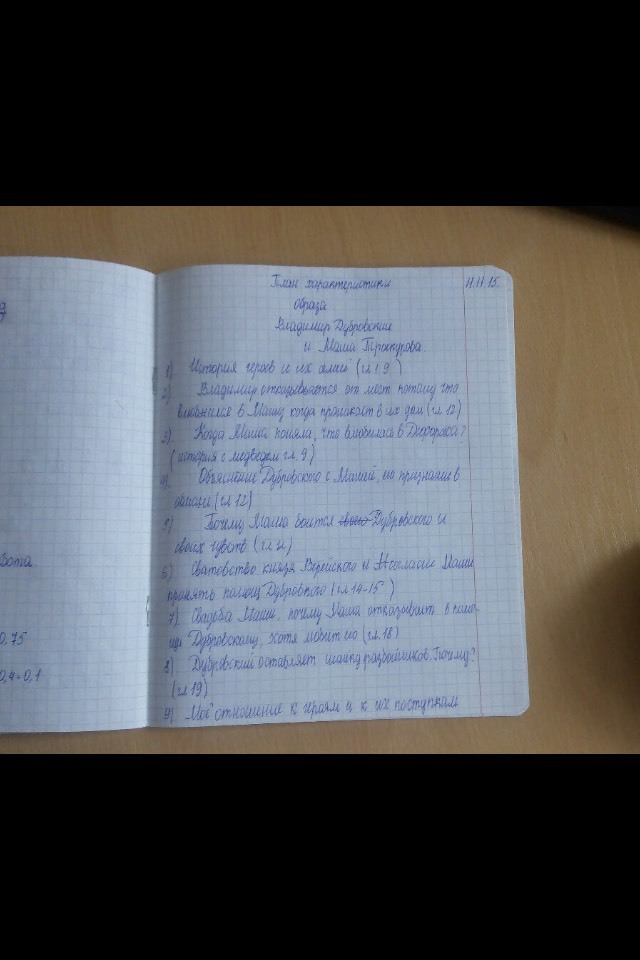 План характеристики 11.11.15.
образа
Владимир Дубровский
и Маша Троекурова.
1) История героев и их семей (гл 1, 9)
2) Владимир отказывается от мест потому что
влюбился в Машу, когда проникает в их дом (гл. 12)
3) Когда Маша поняла, что влюбилась в Дефоржа?
(история с медведем гл. 9)
4) Объяснение Дубровского с Машей, его признание в
(гл 12)
5) Почему Маша боится своего Дубровского и
своих чувств (гл. )
6) Сватовство князя Верейского и Несогласие Маши
принять помощ Дубровского (гл. 14-15)
7) Свадьба Маши, почему Маша отказывает в помо-
щи Дубровскому, хотя любит его (гл. 18)
8) Дубровский оставляет шайку разбойников. Почему?
(гл 19)
9) Моё отношение к героям и к их поступкам
фота
0,75
0,4=0,1